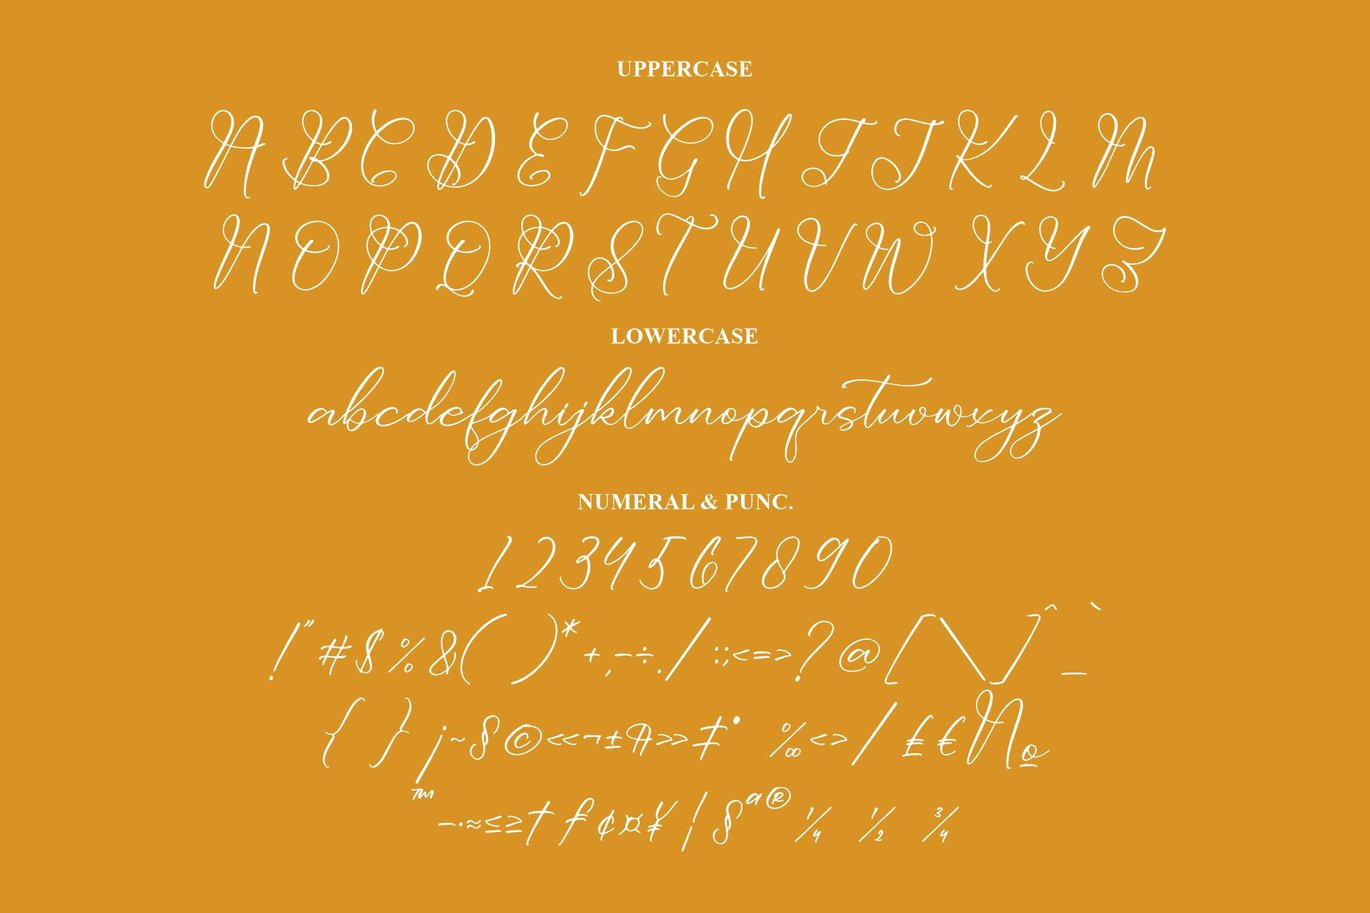 UPPERCASE
A B C D E F G H I J K L M
N O P Q R S T U V W X Y Z
LOWERCASE
abcdefghijklmnopqrstuvwxyz
NUMERAL & PUNC.
1 2 3 4 5 6 7 8 9 0
! " # $ % & ( ) * + , - ÷ . / : ; < = > ? @ [ \ ] ^ _ `
{ } ¡ ~ § © « ¬ ± ¶ » ‡ • ‰ < > / £ € № 
™ – · ≈ ≤ ≥ † ƒ ¢ ¤ ¥ ¦ § ª ® ¼ ½ ¾